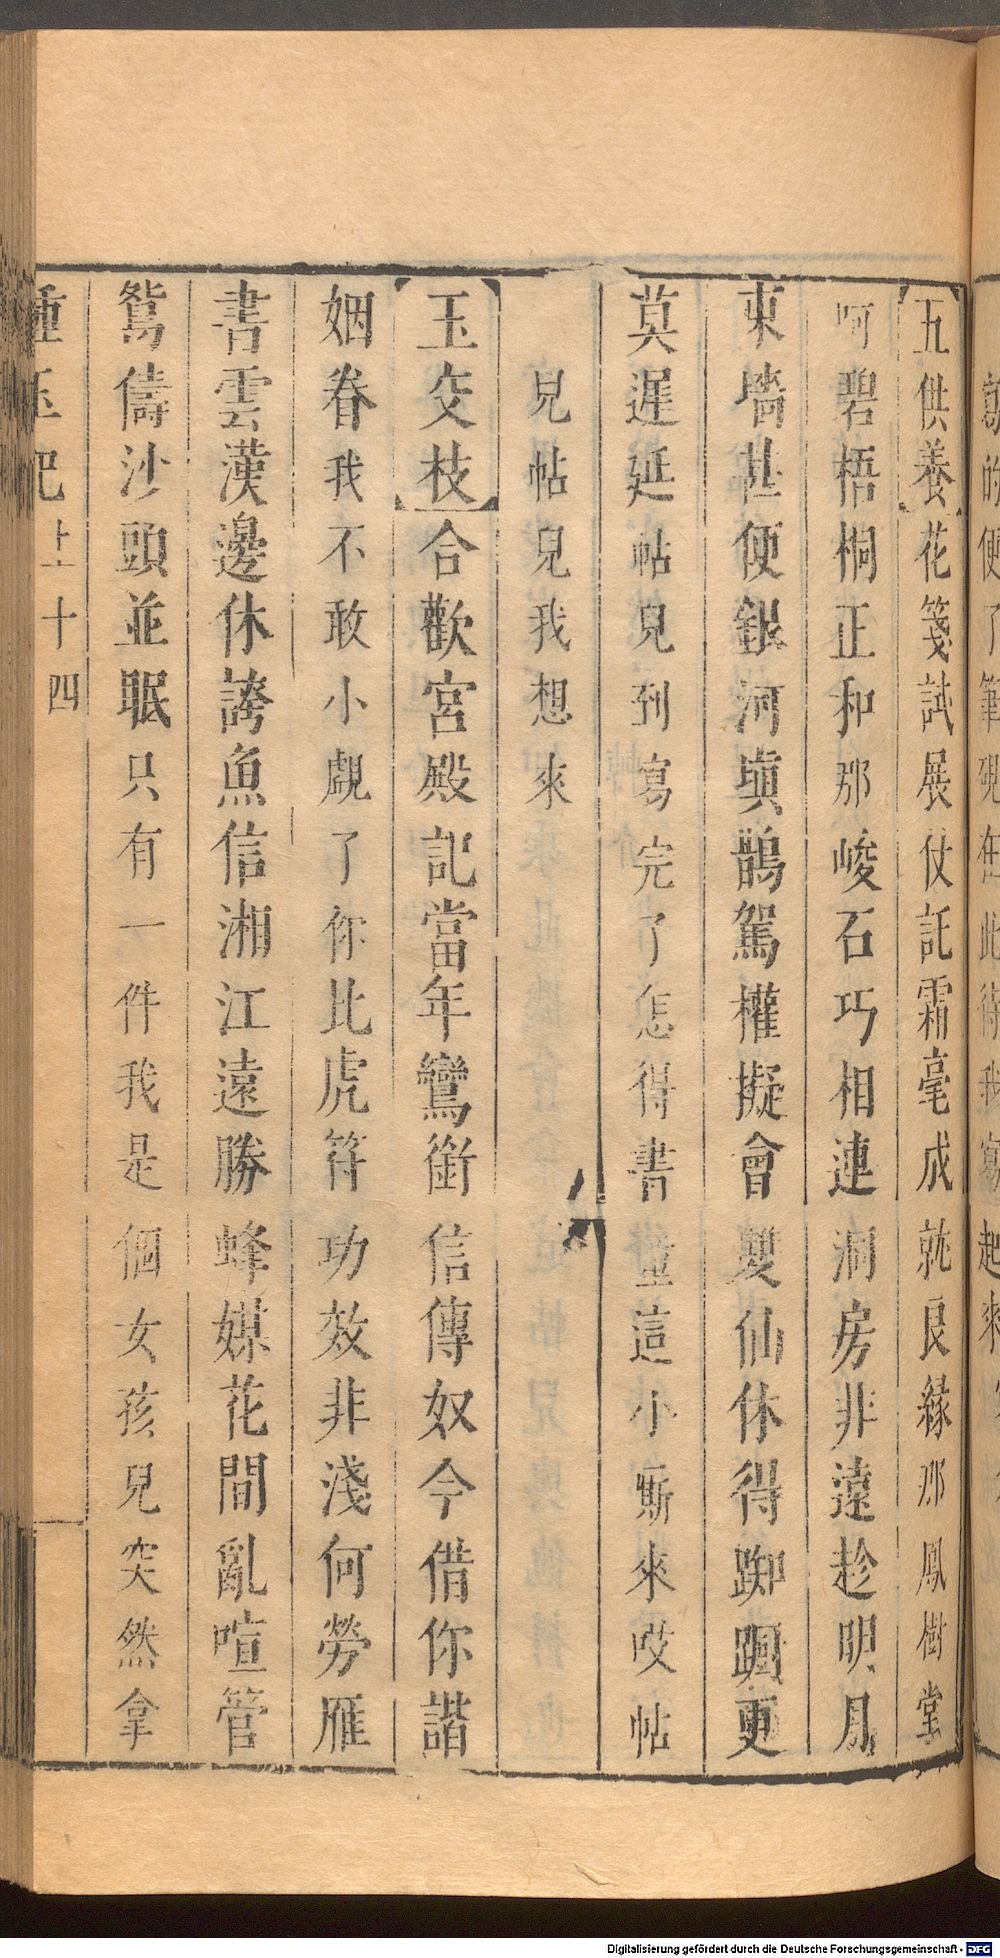 五供養花箋試展仗託霜毫成就良緣那鳳樹堂
呵碧梧桐正和那峻石巧相連洞房非遠趁明月
東墻甚便銀河塡鵲駕權擬會雙仙休得踟躕更
莫遲延帖兒到寫完了怎得書童這小厮來哎帖
兒帖兒我想來
玉交枝合歡宮殿記當年鸞銜信傳奴今借你諧
姻眷我不敢小覷了你比虎符功效非淺何勞雁
書雲漢邊休誇魚信湘江遠勝蜂媒花間亂喧管
鴛儔沙頭並眠只有一件我是個女孩兒突然拿
種玉記上十四
Digitalisierung gefördert durch die Deutsche Forschungsgemeinschaft - DFG